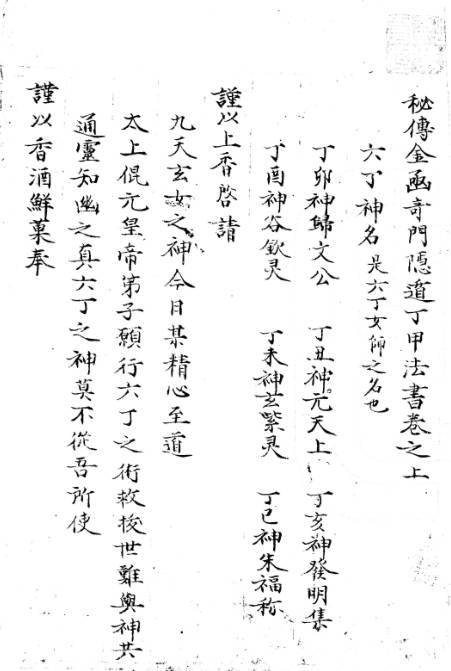 秘傳金函竒門隠遁丁甲法書卷之上
六丁神名 是六丁女師之名也
丁卯神歸文公 丁丑神元天上 丁亥神發明集
丁酉神谷欽灵 丁未神玄紫灵 丁巳神朱福称
謹以上香啓請
九天玄女之神今日某精心至道
太上倱元皇帝苐子願行六丁之術救挍世難與神共
通靈知幽之真六丁之神莫不從吾所使
謹以香酒鮮菓奉